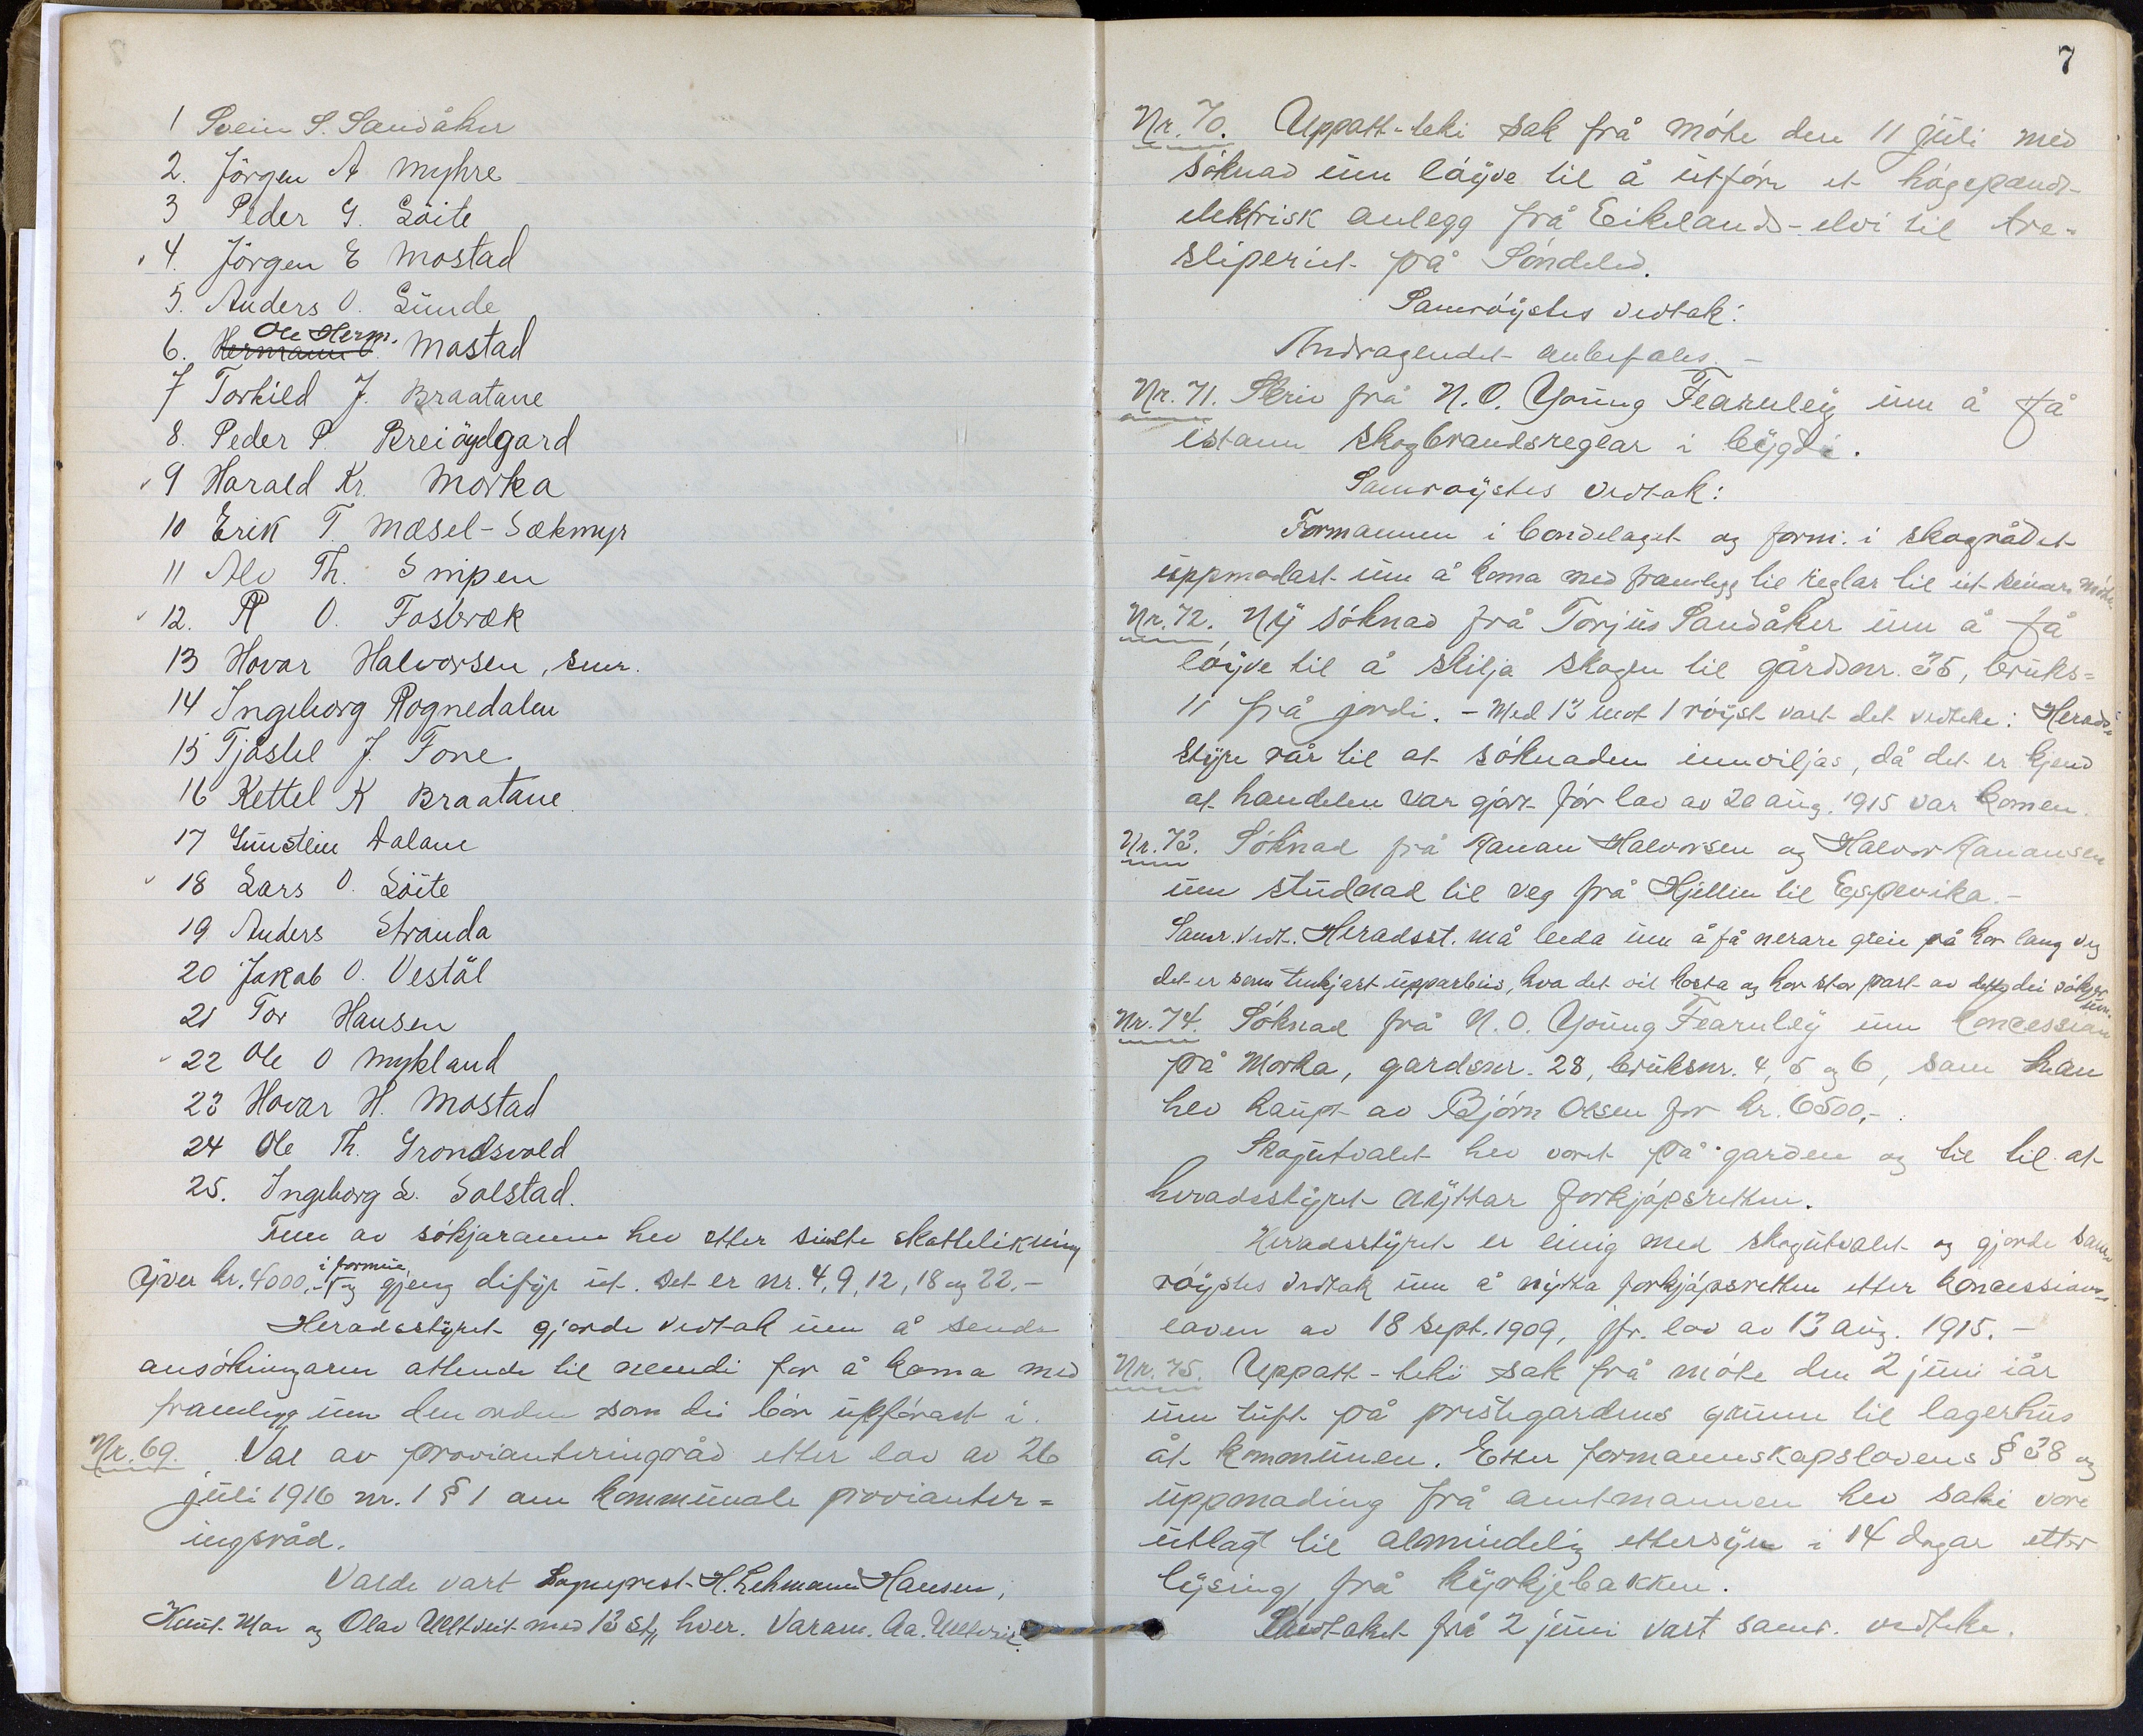 1 Svein S. Sandåker
2. Jörgen A Myhre
3 Peder G. Löite
4. Jörgen E Mostad
5. Anders O. Lunde
6. Hermann O. Ole Herm. Mostad
7 Torkild J. Braatane
8. Peder P. Breiöygard
9 Harald Kr. Morka
10 Erik T. Mæsel-Sækmyr
11 Alv Th. Snipen
12. R O. Fosbræk
13 Hovar Halvorsen, smr.
14 Ingeborg Rognedalen
15 Tjöstel J. Fone
16 Kettel K Braatane
17 Gunstein Dalane
18 Lars O. Löite
19 Anders Stranda
20 Jakob O. Vestöl
21 Tor Hansen
22 Ole O Mykland
23 Hovar H. Mostad
24 Ole Th. Grondsvold
25. Ingeborg L. Solstad.
Fem av sökjaranne hev etter siste skattelikning
yver kr. 4000,- i formue og gjeng difyr ut. Det er nr. 4, 9, 12, 18 og 22.-
Heradsstyret gjorde vedtak um å senda
ansökningarne attende til nemdi for å koma med
framlegg um den orden som dei bör uppförast i.
Nr. 69. Val av provianteringsråd etter lov av 26
juli 1916 nr. 1 § 1 om kommunale provianter=
ingsråd.
Valde vart Sogneprest H. Lehmann Hansen,
Knut Moe og Olav Ulltveit med 13 st. hver. Varam. Aa. Ulltveit.
7
Nr. 70. Uppatt-teki sak frå móte den 11 juli med
söknad um löyve til å utföre et högspendt-
elektrisk anlegg frå Eikelands-elvi til tre-
sliperiet på Söndeled.
Samröystes vedtak:
Andragendet anbefales. -
Nr. 71. Skriv frå N. O. Young Fearnley um å få
istann skogbrandsreglar i bygdi.
Samröystes vedtak:
Formannen i bondelaget og form. i skogrådet
uppmodast um å koma med framlegg til reglar til eit seinare möte.
Nr. 72. Ny söknad frå Torjus Sandåker um å få
löyve til å skilja skogen til gårdsnr. 35, bruks=
11 frå jordi. - Med 13 mot 1 röyst vart det vedteke: Herads=
styre rår til at söknaden innviljas, då det er kjend
at handelen var gjort för lov av 20 aug. 1915 var komen.
Nr. 73. Söknad frå Kanan Halvorsen og Halvor Kanansen
um studnad til veg frå Hjellen til Espevika. -
Samr. vedt. Heradsst. må beda um å få nerare greie på kor lang veg
det er som tenkjast upparbeid, kva det vil kosta og kor stor part av dette dei sökjer um.
Nr. 74. Söknad frå N. O. Young Fearnley um koncession
på Morka, gardsnr. 28, bruksnr. 4, 5 og 6, som han
hev kaupt av Björn Olsen for kr. 6500,-.
Skogutvalet hev voret på garden og til til at
heradsstyret nyttar forkjöpsretten.
Heradsstyret er einig med skogutvalet og gjorde sam-
röystes vedtak um å nytta forkjöpsretten etter koncessions-
loven av 18 sept. 1909, jfr. lov av 13 aug. 1915. -
Nr. 75. Uppatt-teki sak frå möte den 2 juni iår
um tuft på prestegardens grunn til lagerhus
åt kommunen. Etter formannskapslovens § 38 og
uppmoding frå amtmannen hev saki vore
utlagt til almindelig ettersyn i 14 dagar etter
lysing frå kyrkjebakken.
Vedtaket frå 2 juni vart samr. vedteke.